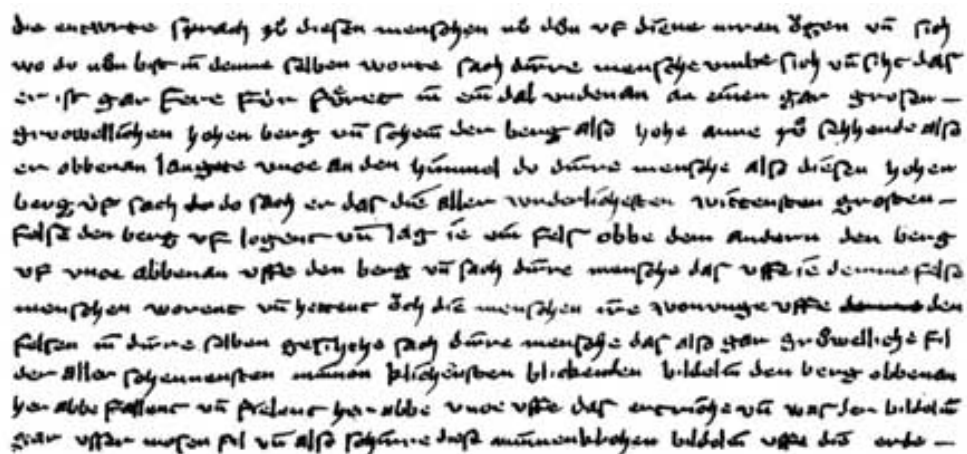 die entwrte sprach zů diesen menschen nů důn uf diene nwan ǒgen vn̄ sich
wo du nůn bist in̄ demme selben worte sach diῡrre mensche vmbe sich vn̄ siht das
er ist gar ferre für fu̍ret in̄ ein̄ dal vndenan an einen gar grosen
gruowellichen hohen berg vn̄ schein̄ der berg also hohe anne zů sehhende also
er obbenan langete vnce an den himmel do dirre mensche also diesen hohen
berg uf sach do sach er das die aller wnderlichesten wittensten grosten
felse den berg vf logent vn̄ lag ie ein fels obbe dem andern den berg
vf vnce abbenan vffe den berg vn̄ sach dirre mensche das vffe ie demme felse
menschen worent vn̄ hettent ǒch die menschen ire wonunge vffe den
felsen in̄ dirre selben geschihte sach dirre mensche das also gar grǒwelliche fil
der aller schennensten minnen klichensten blickenden bildelin̄ den berg obbenan
her abbe fallent vn̄ fielent her abbe vnce vffe das ertriche vn̄ was der bildelin̄
gar vsser mosen fil vn̄ also schirre diese minnenklichen bildelin̄ vffe die erde